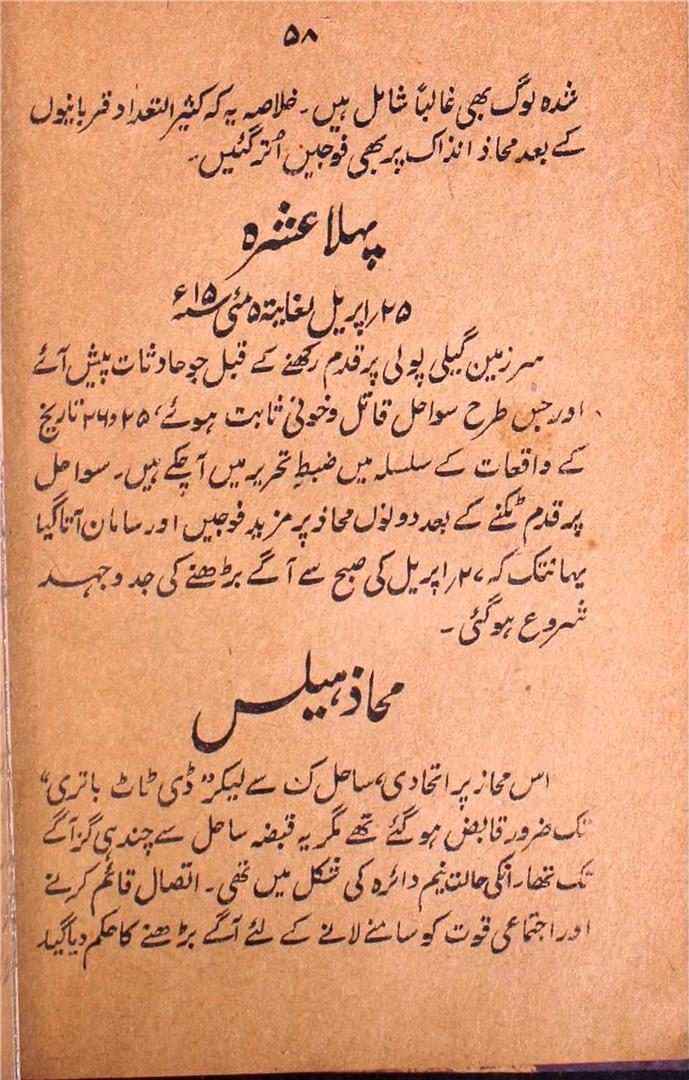 ۵۸
شدہ لوگ بھی غالباً شامل ہیں۔ خلاصہ یہ کہ کثیر التعداد قربانیوں
کے بعد محاذ انذاک پر بھی فوجیں اُتر گئیں۔
پہلا عشرہ
۲۵؍اپریل لغایۃ ۵ مئی ۱۵ء
سرزمین گیلی پولی پر قدم رکھنے کے قبل جو حادثات پیش آئے
اور جس طرح سواحل قاتل و خونی ثابت ہوئے، ۲۵ و ۲۶ تاریخ
کے واقعات کے سلسلہ میں ضبطِ تحریر میں آ چکے ہیں۔ سواحل
پر قدم ٹکنے کے بعد دونوں محاذ پر مزید فوجیں اور سامان آتا گیا
یہانتک کہ ۲۷؍اپریل کی صبح سے آگے بڑھنے کی جد و جہد
شروع ہو گئی۔
محاذ ہیلس
اس محاز پر اتحادی، ساحل ک سے لیکر "ڈی ٹاٹ باتری"
تک ضرور قابض ہو گئے تھے مگر یہ قبضہ ساحل سے چند ہی گز آگے
تک تھا۔ انکی حالت نیم دائرہ کی شکل میں تھی۔ اتصال قائم کرنے
اور اجتماعی قوت کو سامنے لانے کے لئے آگے بڑھنے کا حکم دیا گیا۔